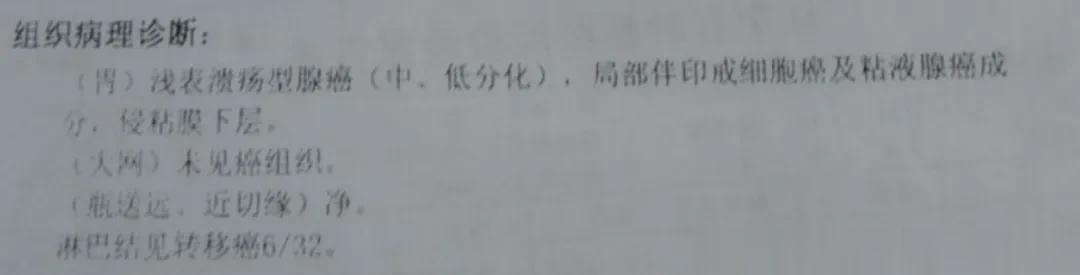 组织病理诊断：
（胃）浅表溃疡型腺癌（中、低分化），局部伴印戒细胞癌及粘液腺癌成
分，侵粘膜下层。
（大网）未见癌组织。
（瓶送远、近切缘）净。
淋巴结见转移癌6/32。